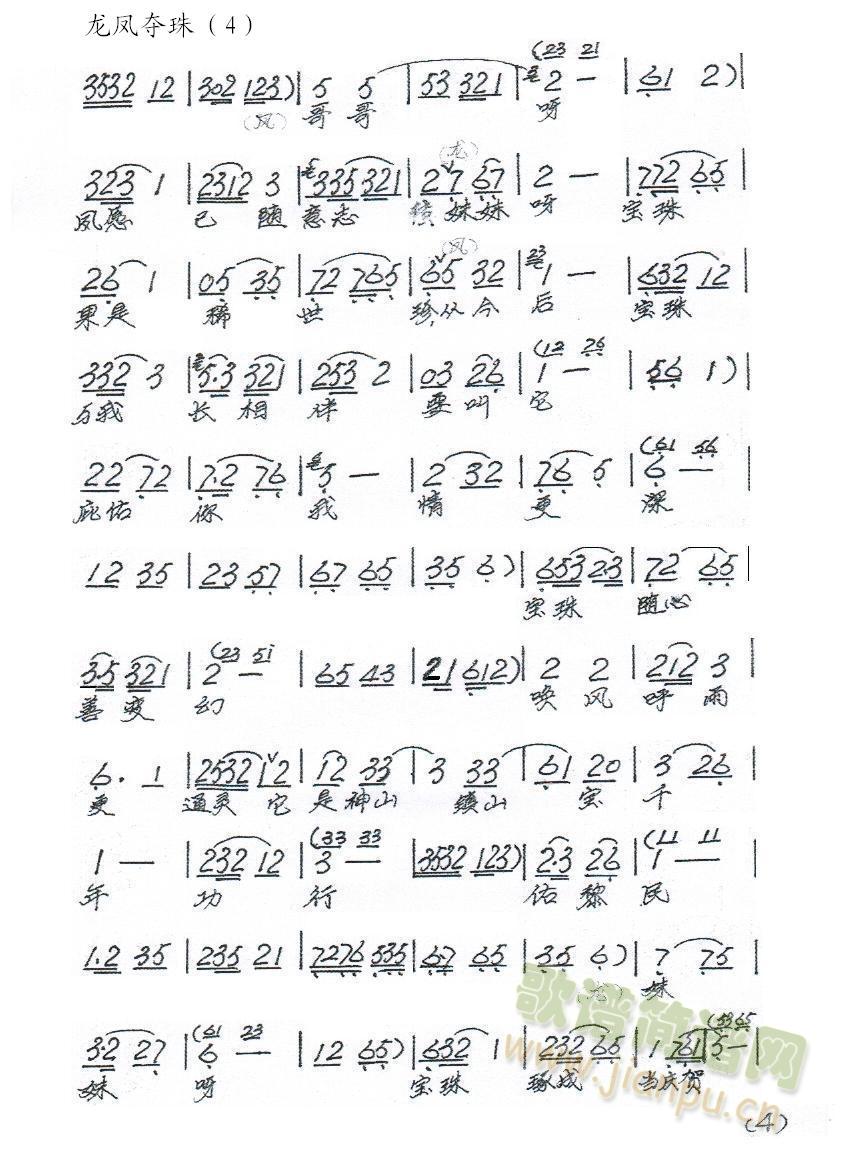 龙凤夺珠（4）
(23 21
3532 12 | 302 123) | 5 5 | 53 321 | 2 — | 61 2) |
(凤) 哥 哥 呀
(龙)
323 1 | 2312 3 | 335 321 | 27 67 | 2 — | 772 65 |
凤愿 已 随 意志 妹妹 呀 宝珠
(凤)
26 1 | 05 35 | 72 765 | 65 32 | 1 — | 632 12 |
果是 稀 世 珍,从今 后 宝珠
(12 26
332 3 | 5·3 321 | 253 2 | 03 26 | 1 — | 56 1) |
与我 长相 伴 要叫 它
(61 56
22 72 | 7·2 76 | 5 — | 2 32 | 76 5 | 6 — |
庇佑 你 我 情 更 深
12 35 | 23 57 | 67 65 | 35 6) | 653 2·3 | 72 65 |
宝珠 随心
(23 51
3·5 321 | 2 — | 65 43 | 21 612) | 2 2 | 212 3 |
善变 幻 唤风 呼雨
6· 1 | 2532 12 | 12 33 | 3 33 | 61 20 | 3 26 |
更 通灵 它 是神山 镇山 宝 千
(33 33 (11 11
1 — | 232 12 | 3 — | 3532 123) | 2·3 26 | 1 — |
年 功 行 佑黎 民
1·2 35 | 235 21 | 7276 535 | 6·7 65 | 35 6) | 7 75 |
(龙) 妹
(61 23 (5365
3·2 27 | 6 — | 12 65) | 632 1 | 232 65 | 1 761 | 5 — |
妹 呀 宝珠 琢成 当庆贺
歌谱简谱网
www.jianpu.cn
(4)